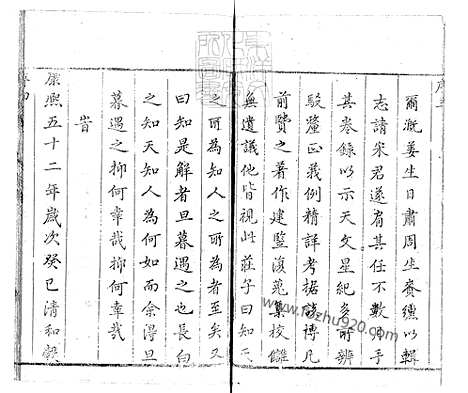 爾溉姜生日肅周生賚纁以輯
志請宋君遂肩其任不數月手
其参錄以示天文星紀多所辨
駁釐正義例精詳考据該博凡
前賢之著作建監復蒐纂校讎
無遺議他皆視此莊子曰知天
之所為知人之所為者至矣又
曰知是解者旦暮遇之也長白
之知天知人為何如而余得旦
暮遇之抑何幸哉抑何幸哉
旹
康熙五十二年歲次癸巳清和穀
www.fozhu920.com